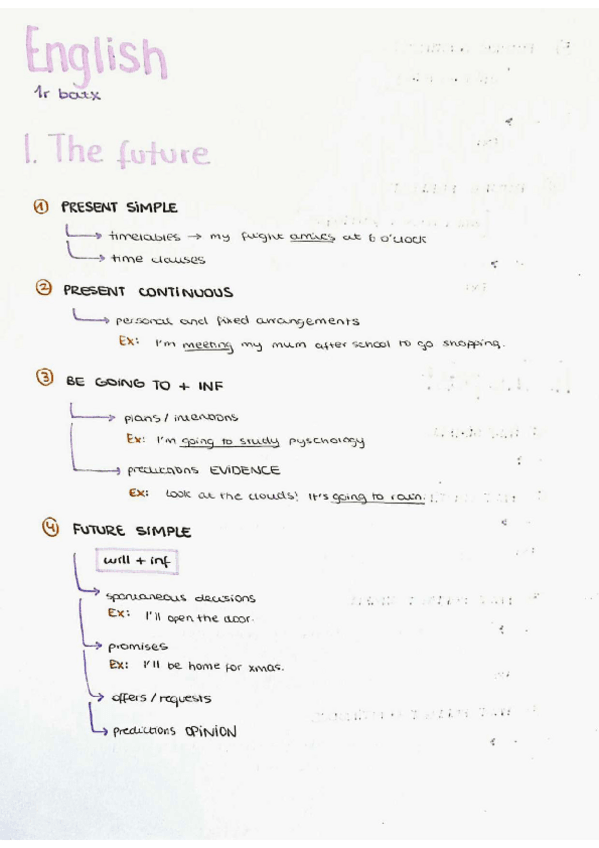 English
1r batx
1. The future
① PRESENT SIMPLE
timetables → my flight arrives at 6 o'clock
time clauses
② PRESENT CONTINUOUS
personal and fixed arrangements
Ex: I'm meeting my mum after school to go shopping.
③ BE GOING TO + INF
plans / intentions
Ex: I'm going to study pyschology
predictions EVIDENCE
Ex: Look at the clouds! It's going to rain.
④ FUTURE SIMPLE
will + inf
spontaneous decisions
Ex: I'll open the door.
promises
Ex: I'll be home for xmas.
offers / requests
predictions OPINION